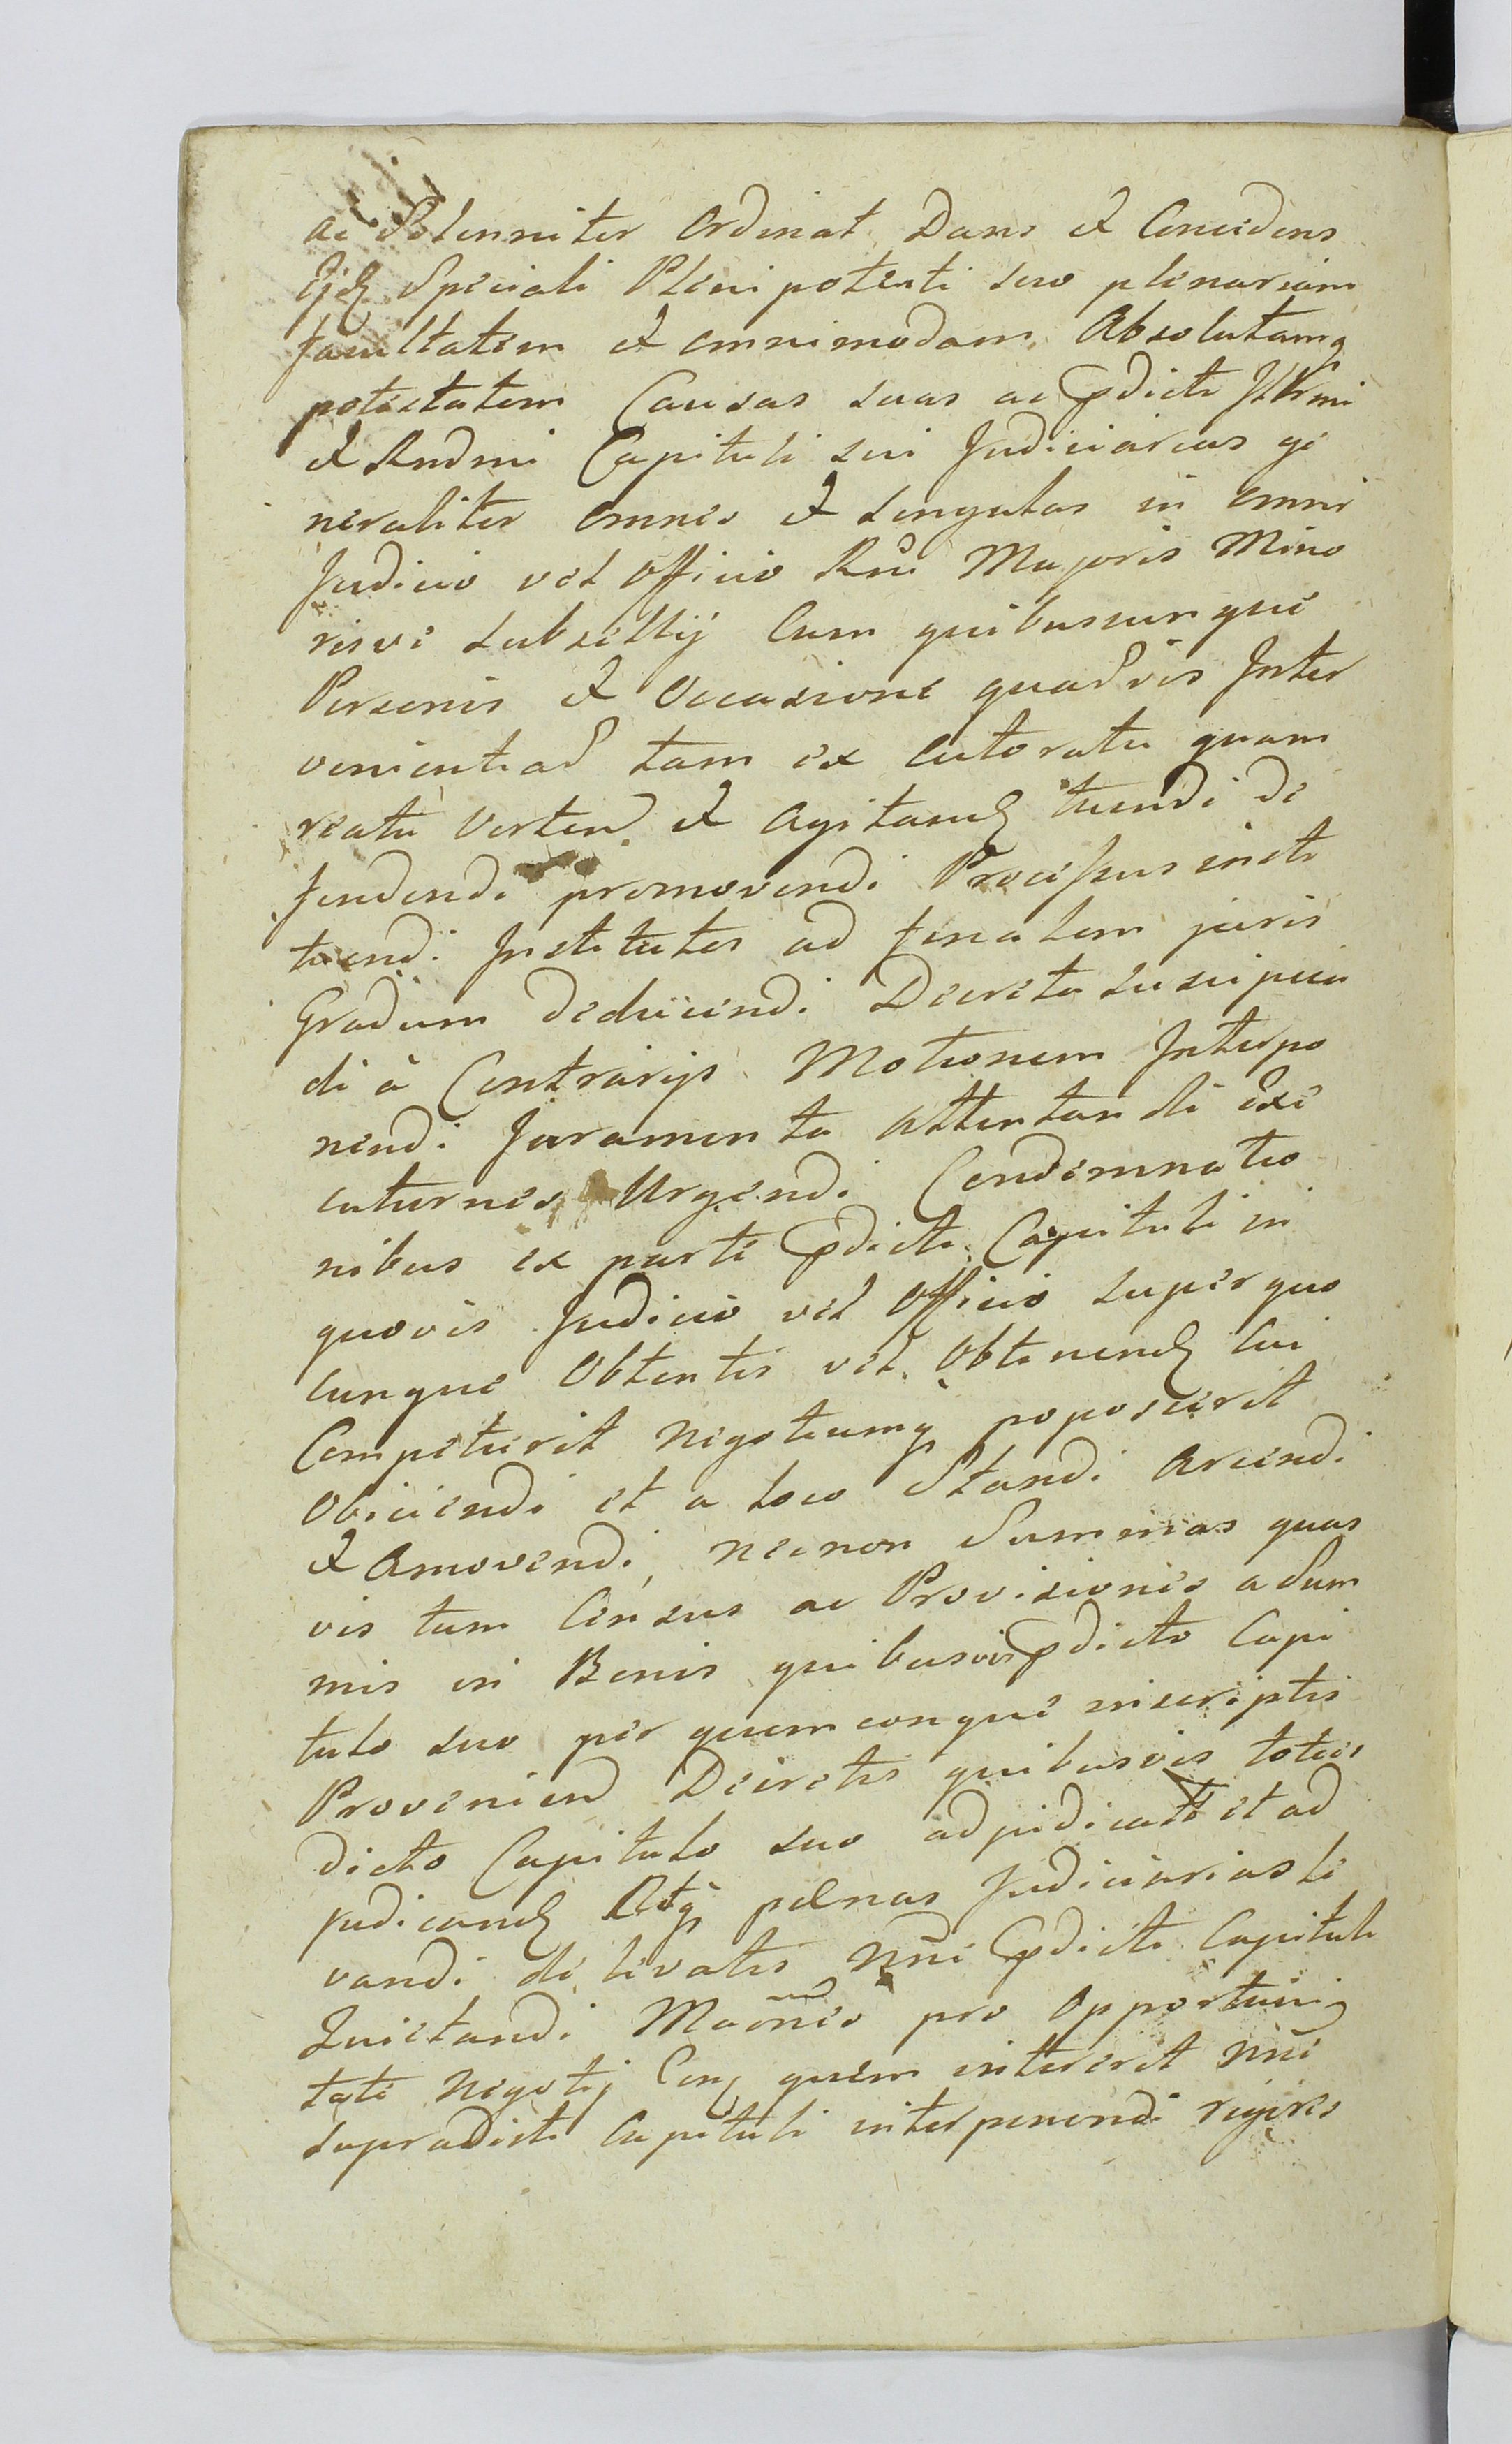 ac Solenniter Ordinat Dans et Concedens
Ejdẽ Speciali Plenipotenti suo plenariam
facultatem et omnimodam Absolutamq
potestatem Causas suas ac pdicti Jllrmi
et Rndmi Capituli sui Judiciarias ge
neraliter omnes et singulas in omni
Judicio vel Officio Rni Majoris Mino
risve subsellij Cum quibuscunque
Personis et Occasione quadvis Inter
venientiad tam ex Actoratu quam
reatu Vertend et Agitand tuendi de
fendendi promovendi Processus insti
tuendi Institutos ad finalem juris
Gradum deducendi Decreta suscipien
di à Contrarijs Motionem Interpo
nendi Juramenta Attentandi Exe
cutiones Urgendi Condemnatio
nibus ex parte pdicti Capituli in
quovis Judicio vel Officio super quo
cunque Obtentis vel Obtinend cui
Competierit Negotiumq poposcerit
Obiiciendi et a loco Standi Arcendi
et Amovendi, necnon Summas quas
vis tum Census ac Provisiones a Sum
mis in Bonis quibusvis pdicto Capi
tulo suo per quemcunque inscriptis
Proveniend Decretis quibusvis toties
dicto Capitulo suo adjudicats et ad
judicand Atq pœnas Judiciarias le
vandi de levatis Nñe pdicti Capituli
Quietandi Maõnes pro Opportuni
tate Negotij Cunq quem intererit Nñe
supradicti Capituli interponendi rejices